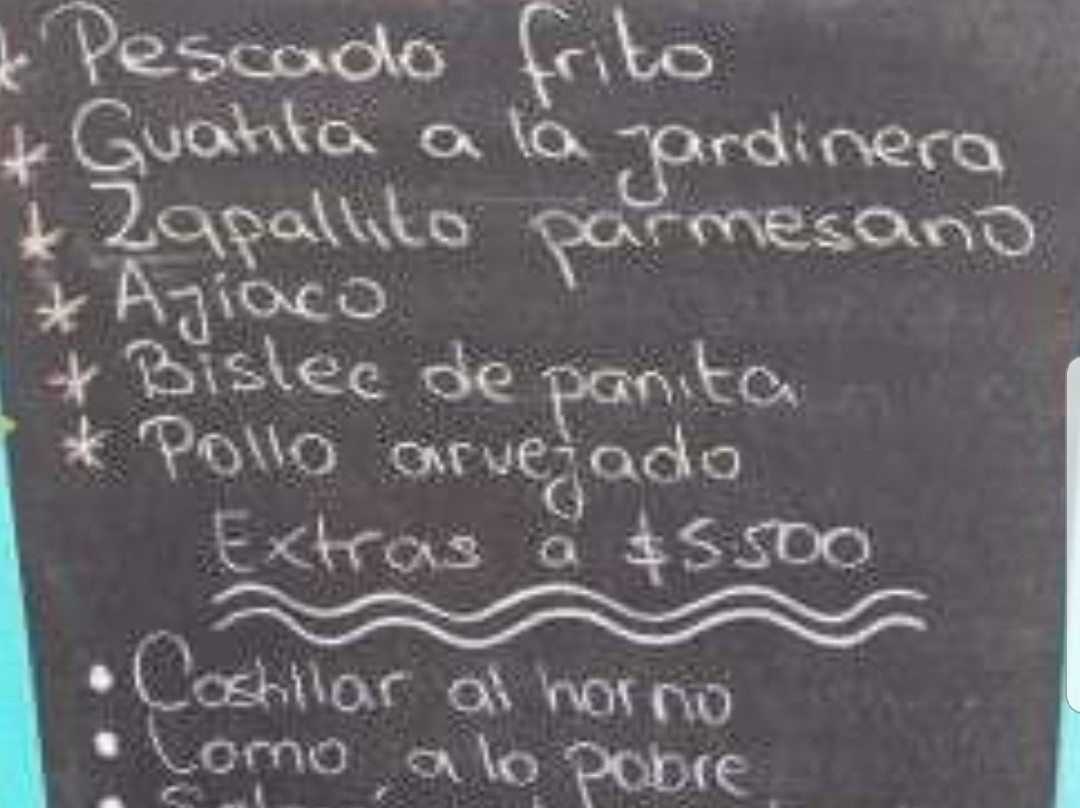 * Pescado frito
* Guatita a la jardinera
* Zapallito parmesano
* Ajiaco
* Bistec de panita
* Pollo arvejado
Extras a $5500
• Costillar al horno
• Lomo a lo pobre